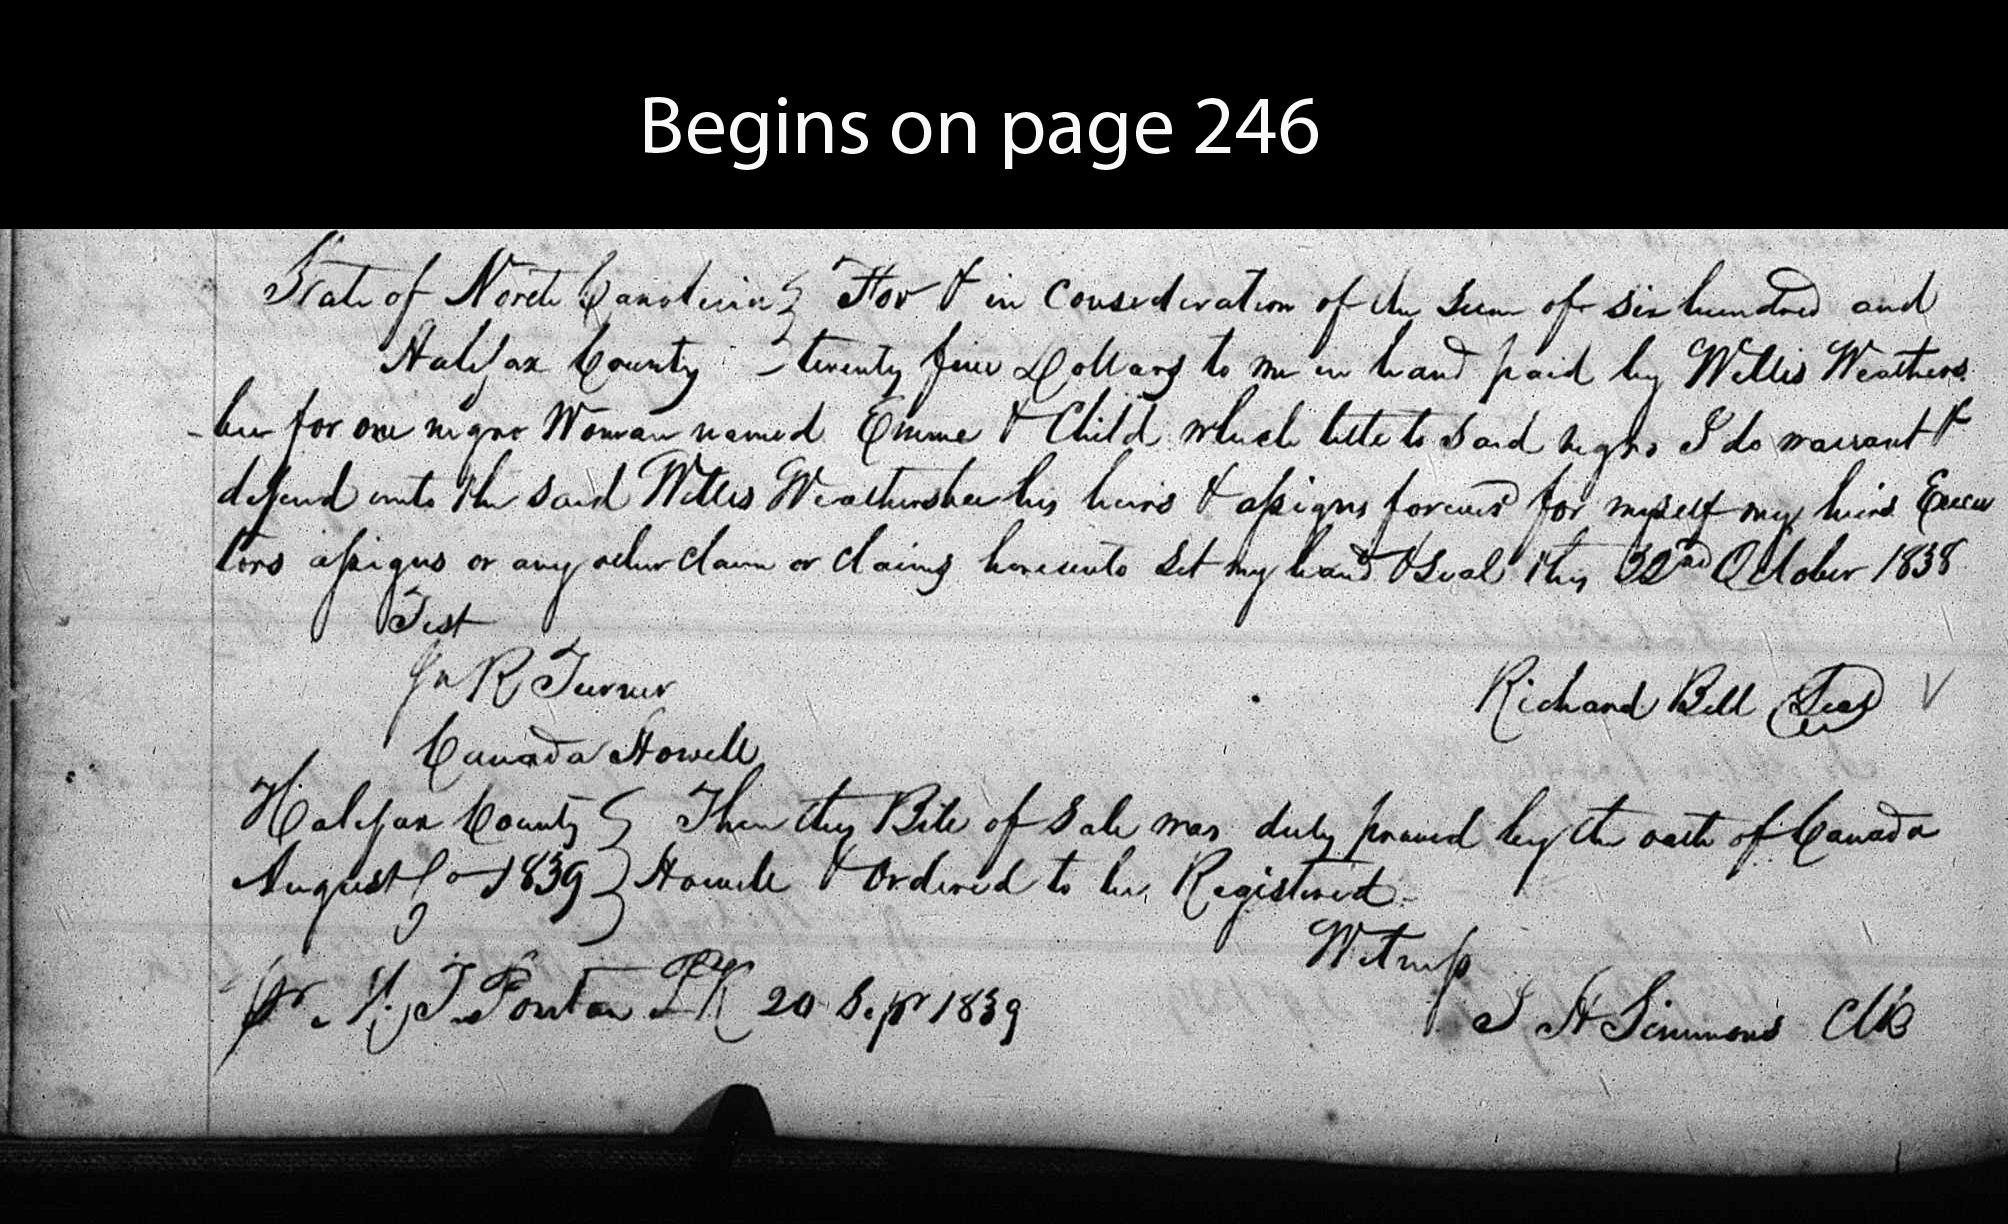 Begins on page 246
State of North Carolina } For & in Consideration of the Sum of six hundred and
Halifax County } twenty five Dollars to me in hand paid by Willis Weathers
bee for one negro Woman named Emme & Child which title to said negro I do warrant &
defend unto the said Willis Weathersbee his heirs & assigns forever for myself my heirs Execu
tors assigns or any other claim or claims hereunto set my hand & Seal this October 1838
Test
Jn R Turner
Richard Bell Seal
Canada Howell
Halifax County } Then this Bill of Sale was duly proved by the oath of Canada
August 1839 } Howell & Ordered to be Registered
Witness
J. Ponton PR 20 Sepr 1839
S H Simmons Clk